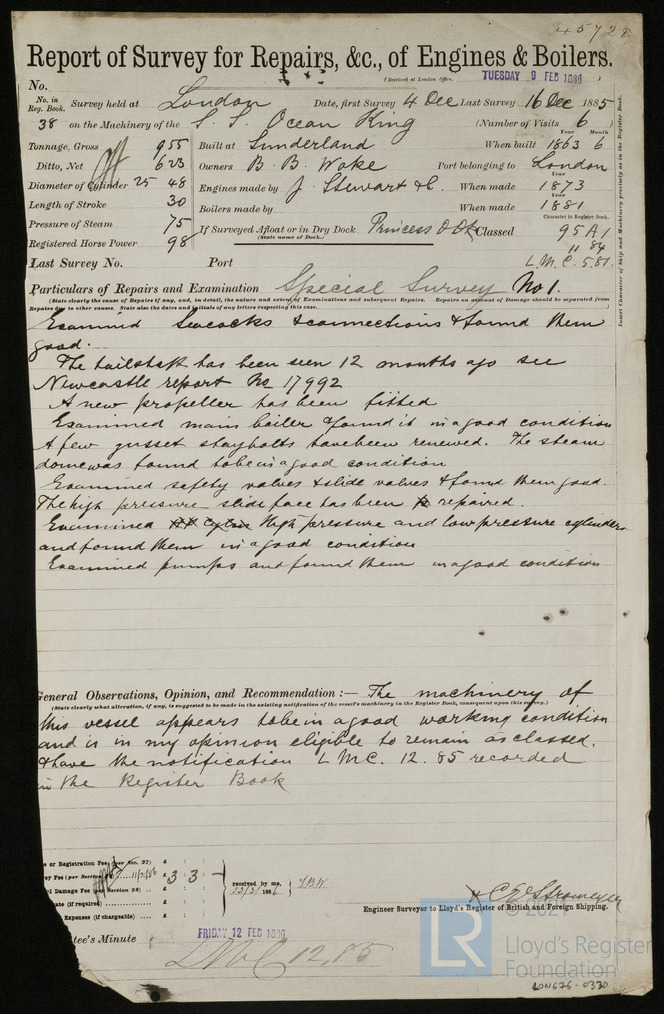 45728
Report of Survey for Repairs, &c., of Engines & Boilers.
(Received at London Office, TUESDAY 9 FEB 1886 )
No.
No. in Reg. Book. Survey held at London Date, first Survey 4 Dec Last Survey 16 Dec 1885
38 on the Machinery of the S. S. Ocean King (Number of Visits 6 )
Year Month
Tonnage, Gross 955 Built at Sunderland When built 1863 6
Ditto, Net 623 Owners B. B. Woke Port belonging to London
Year
Diameter of Cylinder 25 48 Engines made by J. Stewart & Co. When made 1873
Year
Length of Stroke 30 Boilers made by When made 1881
Character in Register Book.
Pressure of Steam 75 If Surveyed Afloat or in Dry Dock Princess D Dk Classed 95 A1
(State name of Dock.)
Registered Horse Power 98 11 84
Last Survey No. Port L.M.C. 5.81.
Particulars of Repairs and Examination Special Survey No 1.
(State clearly the cause of Repairs if any, and, in detail, the nature and extent of Examinations and subsequent Repairs. Repairs on account of Damage should be separated from
Repairs due to other causes. State also the dates and initials of any letters respecting this case.)
Examined Seacocks & connections & found them
good.
The tailshaft has been seen 12 months ago see
Newcastle report No 17992
A new propeller has been fitted
Examined main boiler & found it in a good condition
A few gusset stay bolts have been renewed. The steam
dome was found to be in a good condition
Examined safety valves & slide valves & found them good.
The high pressure slide face has been repaired.
Examined High pressure and low pressure cylinders
and found them in a good condition
Examined pumps and found them in a good condition
General Observations, Opinion, and Recommendation :— The machinery of
(State clearly what alteration, if any, is suggested to be made in the existing notification of the vessel's machinery in the Register Book, consequent upon this survey.)
this vessel appears to be in a good working condition
and is in my opinion eligible to remain as classed.
& have the notification L M C. 12. 85 recorded
in the Register Book
or Registration Fee (per Sec. 27) £ : :
Fee (per Section 28) 11/2/86 £ 3 : 3 :
Damage Fee (per Section 28) £ : :
(if required) £ : :
Expenses (if chargeable) £ : :
received by me,
23/3/1886
Engineer Surveyor to Lloyd's Register of British and Foreign Shipping.
C E Stromeyer
tee's Minute FRIDAY 12 FEB 1886
LMC 12.85
Insert Character of Ship and Machinery precisely as in the Register Book.
LR
© 2021
Lloyd's Register
Foundation
LON676-0330